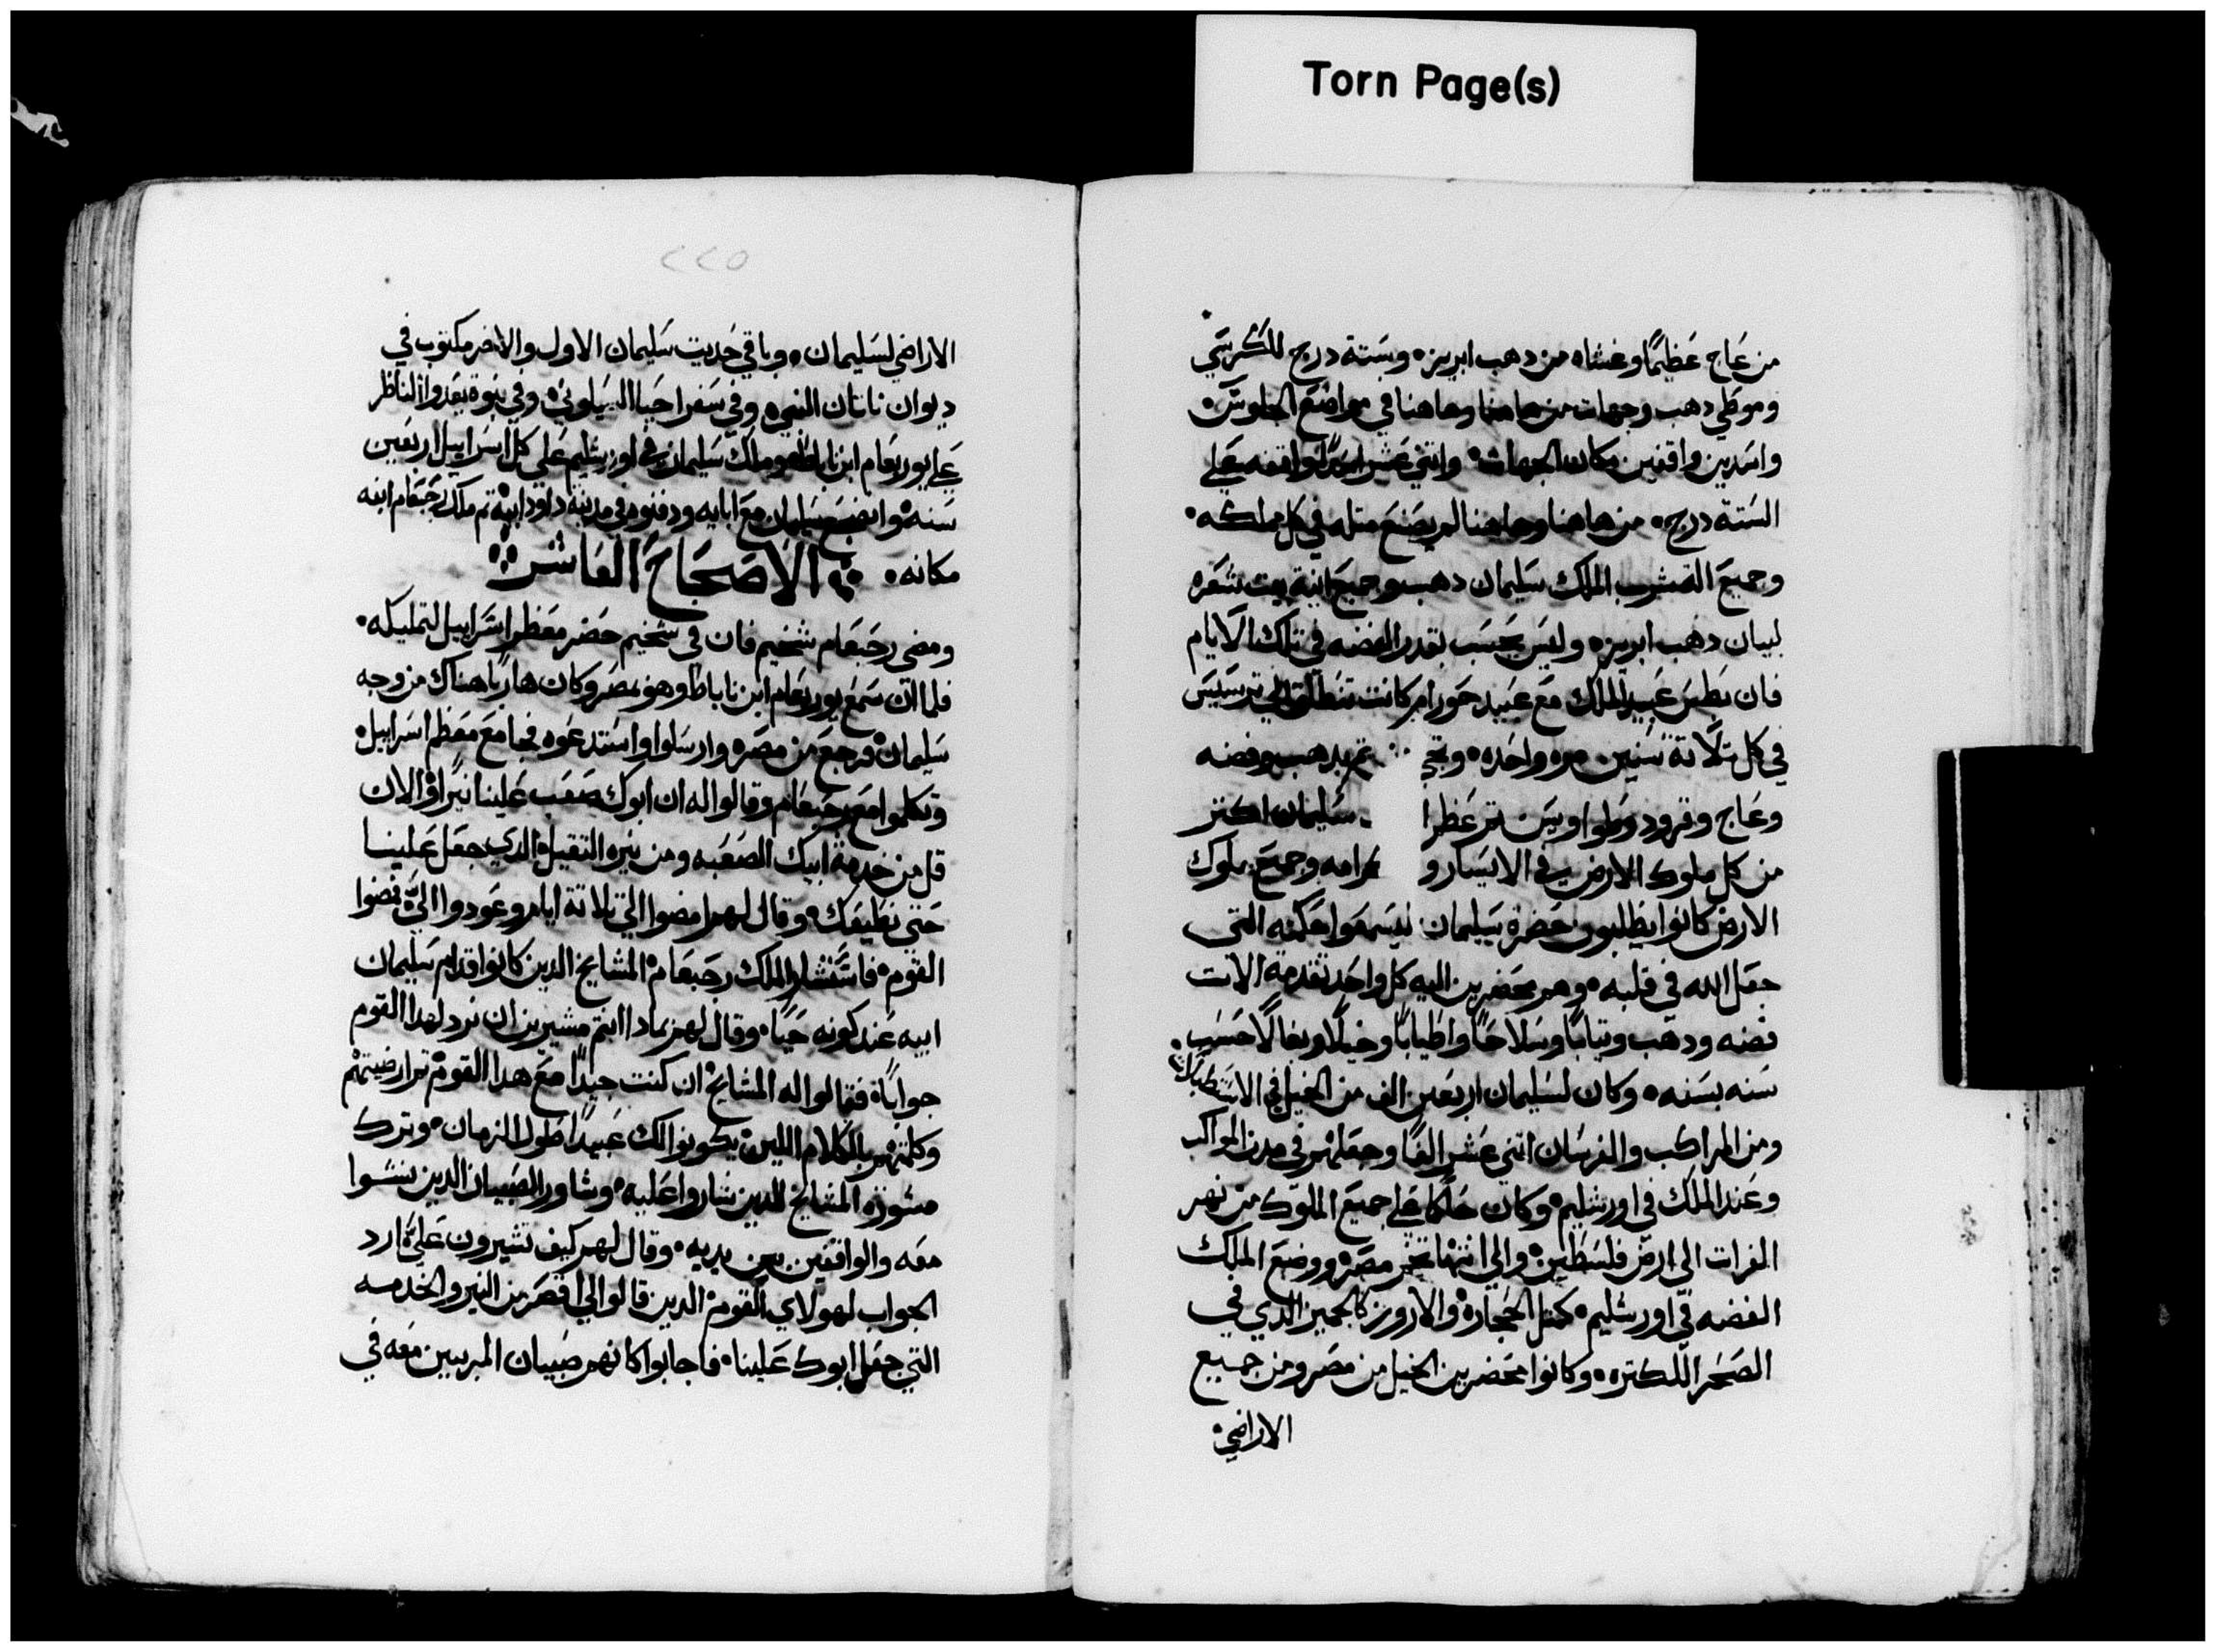 Torn Page(s)
من عاج عظيمًا وغشاه من دهب ابريز• وستة درج للكرسي
وموطي دهب وجهات من هاهنا وهاهنا في مواضع الجلوس•
واسدين واقفين مكان الجهات• واثني عشر اسدًا واقفه علي
الستة درج• من هاهنا وهاهنا لم يصنع متله في كل مملكه•
وجميع الملك سليمان دهب وجميع انية بيت شعره
لبيان دهب ابريز• وليس يحسب بقدر الفضه في تلك الايام
فان عبيد الملك مع عبيد حورام كانت تنطلق الي ترسيس
في كل تلاتة سنين مره واحده• بدهب وفضه
وعاج وقرود سليمان اكتر
من كل ملوك الارض في الايسار و وجميع ملوك
الارض كانوا يطلبون حضرة سليمان ليسمعوا حكمته التي
جعل الله في قلبه• وهم محضرين اليه كل واحد تقدمة الات
فضه ودهب وتيابًا وسلاحًا واطيابًا وخيلًا وبغالًا حسب
سنه بسنه• وكان لسليمان اربعين الف من الخيل في
ومن المراكب والفرسان اتني عشر الفًا وجعلهم في مدن المواكب
وعند الملك في اورشليم• وكان حاكمًا علي جميع الملوك من نهر
الفرات الي ارض فلسطين• والي انتها تخم مصر• ووضع الملك
الفضه في اورشليم• كمتل الحجارة• والارز كالجميز الدي في
الصحرا للكتره• وكانوا محضرين الخيل من مصر ومن جميع
الاراضي•
٢٢٥
الاراضي لسليمان• وباقي حديت سليمان الاول والاخر مكتوب في
ديوان ناتان النبي• وفي سفر احيا السيلوني• وفي نبوة الناظر
علي يوربعام ابن وملك سليمان في اورشليم علي كل اسراييل اربعين
سنه• وانضجع سليمان مع ابايه ودفنوه في مدينة داوود ابيه• تم ملك رحبعام ابنه
مكانه• الاصحاح العاشر
ومضي رحبعام شخيم فان في شخيم حضر معظم اسراييل لتمليكه•
فلما ان سمع يوربعام ابن ناباط وهو بمصر وكان هاربًا هناك من وجه
سليمان• فرجع من مصر• وارسلوا واستدعوه فجا مع معظم اسراييل•
وتكلموا مع رحبعام وقالوا له ان ابوك صعب علينا نيرًا• والان
قلل من خدمة ابيك الصعبه ومن نيره التقيل الدي جعل علينا
حتي نطيعك• وقال لهم امضوا الي تلاتة ايام وعودوا الي• فمضوا
القوم• فاستشار الملك رحبعام المشايخ الدين كانوا قدام سليمان
ابيه عند كونه حيًا• وقال لهم بمادا انتم مشيرين ان نرد لهدا القوم
جوابًا• فقالوا له المشايخ• ان كنت جيدًا مع هدا القوم•
وكلمتهم بالكلام اللين يكونوا لك عبيدًا طول الزمان• وترك
مشورة المشايخ الدين شاروا عليه• وشاور الصبيان الدين نشوا
معه والواقفين بين يديه• وقال لهم كيف تشيرون علي ارد
الجواب لهولاي القوم• الدين قالوا لي اقصر من النير والخدمه
التي جعل ابوك علينا• فاجابوا كانهم صبيان المربيين معه في